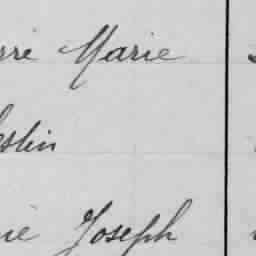 rre Marie
estin
ie Joseph